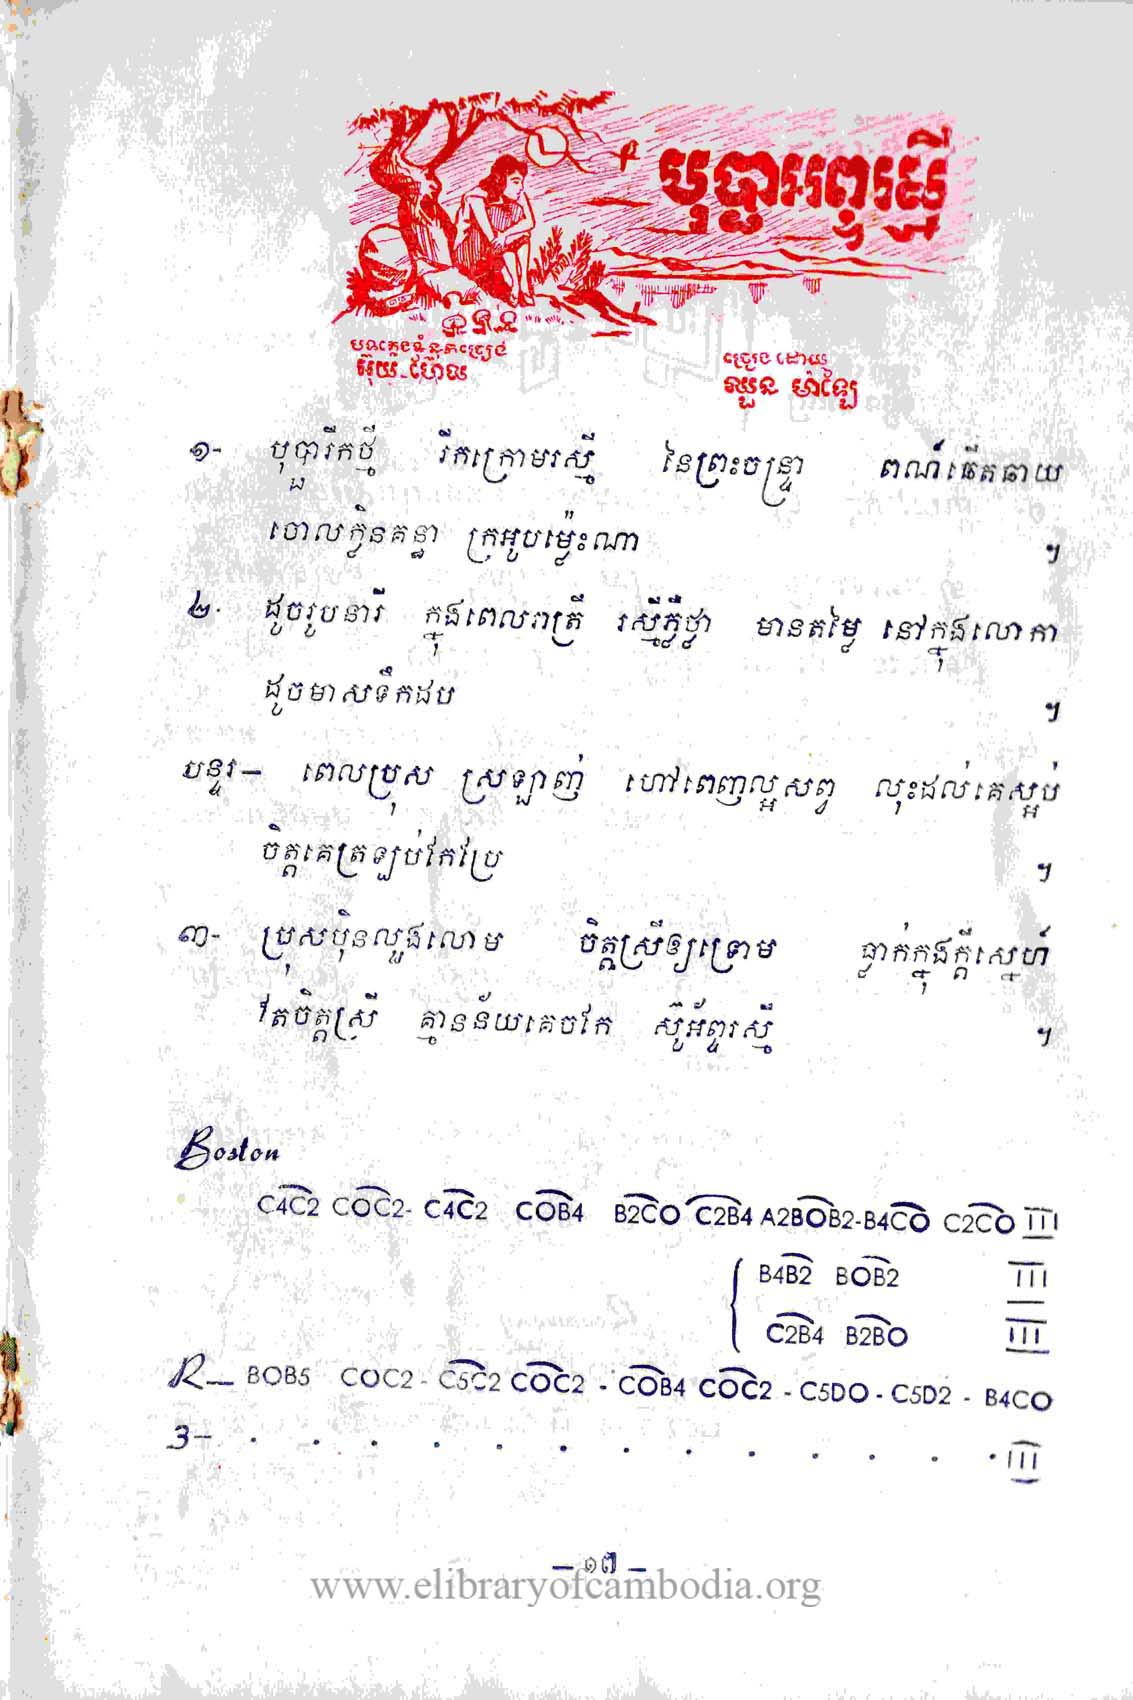 បុប្ផាអព្ទរស្មី
បទភ្លេងទំនុកច្រៀង
អ៊ុយ-ហ៊ែល
ច្រៀងដោយ
ឈួន ម៉ាឡៃ
១- បុប្ផារីកថ្មី រីកក្រោមរស្មី នៃព្រះចន្ទ្រា ពណ៌ឆើតឆាយ
ចោលក្លិនគន្ធា ក្រអូបម្ល៉េះណា ៗ
២- ដូចរូបនារី ក្នុងពេលរាត្រី រស្មីភ្លឺថ្លា មានតម្លៃ នៅក្នុងលោកា
ដូចមាសទឹកដប ៗ
បន្ទរ— ពេលប្រុស ស្រឡាញ់ ហៅពេញល្អសព្វ លុះដល់គេស្អប់
ចិត្តគេត្រឡប់កែប្រែ ៗ
៣- ប្រុសប៉ិនលួងលោម ចិត្តស្រីឲ្យទ្រោម ធ្លាក់ក្នុងក្ដីស្នេហ៍
តែចិត្តស្រី គ្មានន័យគេចកែ ស៊ូអ័ព្ទរស្មី ៗ
Boston
C4C2 COC2- C4C2 COB4 B2CO C2B4 A2BOB2-B4CO C2CO III
B4B2 BOB2 III
C2B4 B2BO III
R— BOB5 COC2 - C5C2 COC2 - COB4 COC2 - C5DO - C5D2 - B4CO
3— . . . . . . . . . . . . . III
— ១៧ —
www.elibraryofcambodia.org